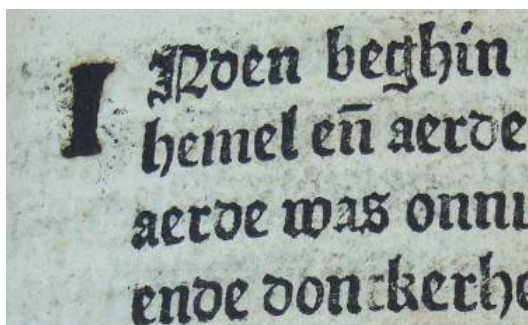 INden beghin
hemel en̄ aerde
aerde was onnu
ende donckerhe